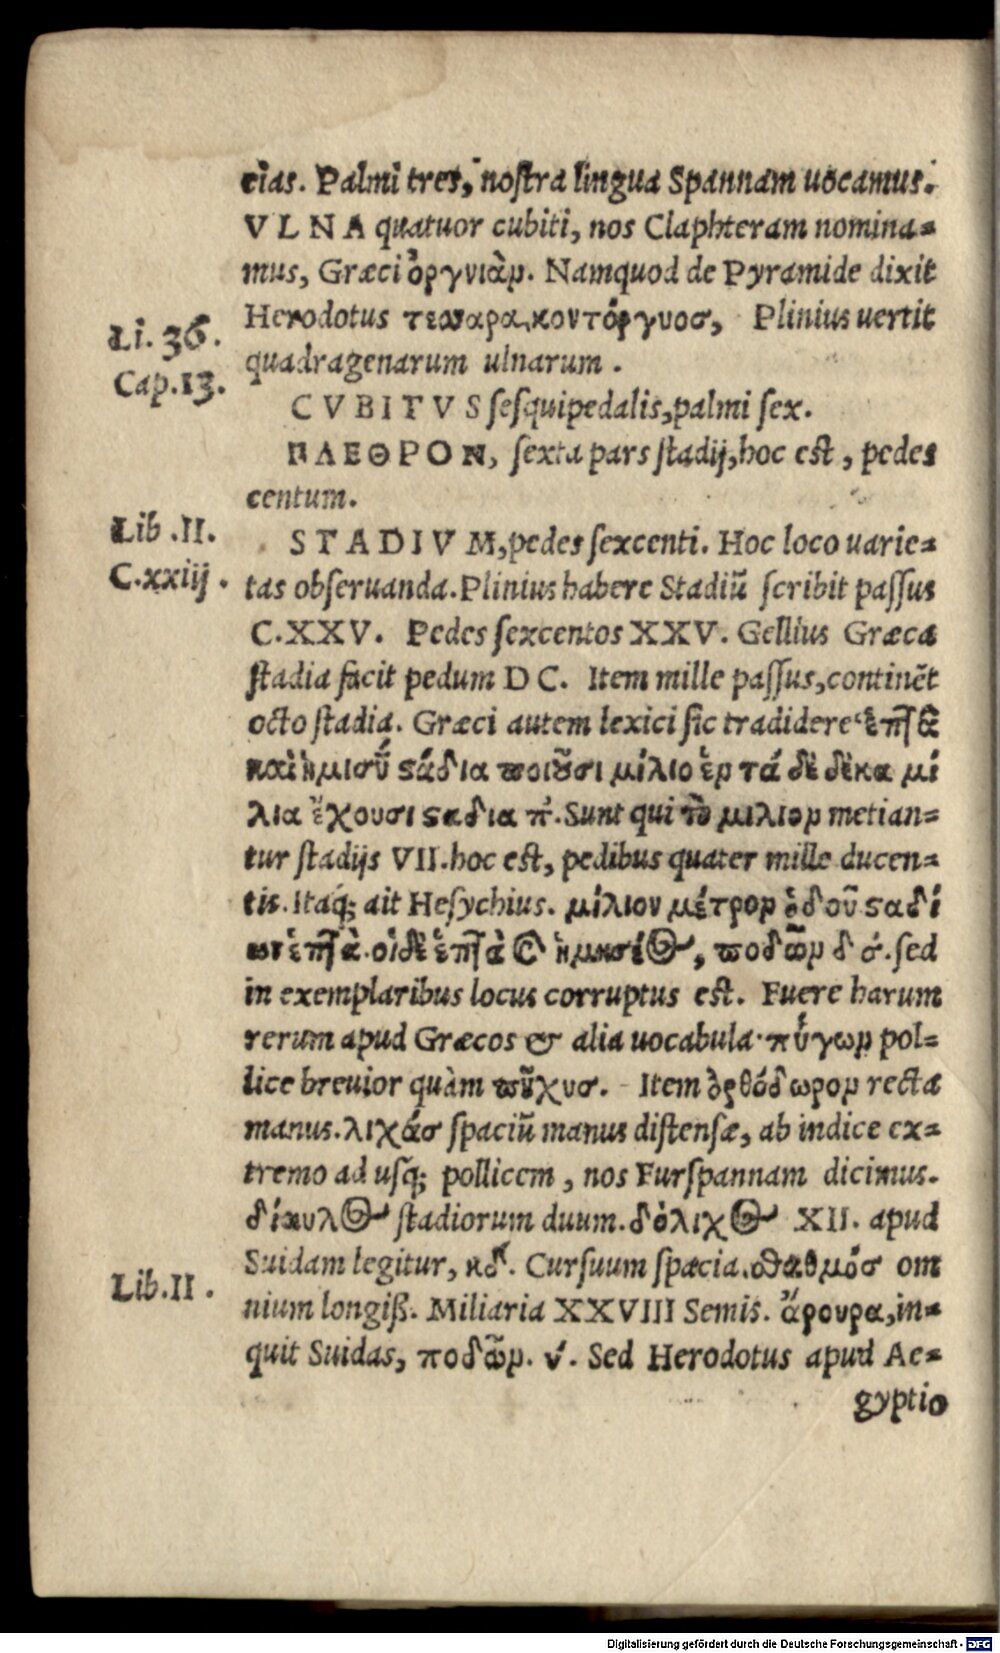 cias. Palmi tres, nostra lingua Spannam uocamus.
VLNA quatuor cubiti, nos Claphteram nomina=
mus, Græci ὀργυιὰν. Namquod de Pyramide dixit
Herodotus τεσσαρακοντόργυοσ, Plinius uertit
Li. 36.
quadragenarum ulnarum.
Cap. 13.
CVBITVS sesquipedalis, palmi sex.
ΠΛΕΘΡΟΝ, sexta pars stadij, hoc est, pedes
centum.
Lib. II.
STADIVM, pedes sexcenti. Hoc loco uarie=
C. xxiij.
tas obseruanda. Plinius habere Stadiũ scribit passus
C.XXV. Pedes sexcentos XXV. Gellius Græca
stadia facit pedum DC. Item mille passus, continẽt
octo stadia. Græci autem lexici sic tradidere ἑπτὰ
καὶ ἥμισυ ϛάδια ποιοῦσι μίλιο ἓν τά δὲ δέκα μί
λια ἔχουσι ϛαδια π. Sunt qui τὸ μιλιον metian=
tur stadijs VII. hoc est, pedibus quater mille ducen=
tis. Itaq; ait Hesychius. μίλιον μέτρον ὁδοῦ ϛαδί
ων ἑπτὰ. οἱ δὲ ἑπτὰ ποδῶν δ σ. sed
in exemplaribus locus corruptus est. Fuere harum
rerum apud Græcos & alia uocabula πύγων pol=
lice breuior quàm πῆχυσ. Item ὀρθόδωρον recta
manus. λιχάσ spaciũ manus distensæ, ab indice ex=
tremo ad usq; pollicem, nos Furspannam dicimus.
δίαυλος stadiorum duum. δόλιχος XII. apud
Suidam legitur, κδ. Cursuum spacia. σταθμόσ om
Lib. II.
nium longiß. Miliaria XXVIII Semis. ἄρουρα, in=
quit Suidas, ποδῶν. ν. Sed Herodotus apud Ae=
gyptio
Digitalisierung gefördert durch die Deutsche Forschungsgemeinschaft - DFG